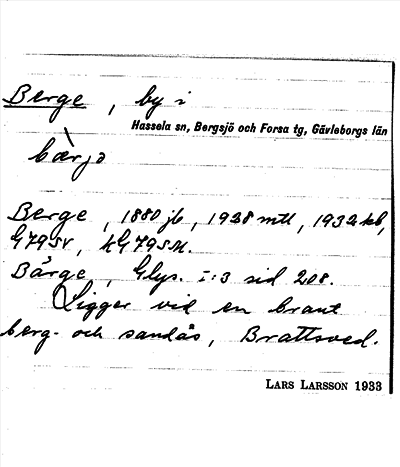 Berge, by i
Hassela sn, Bergsjö och Forsa tg, Gävleborgs län
bærjə
Berge, 1880 jb, 1928 mtl, 1932 kb,
G79SV, kG79SM.
Bärge, Glys. I:3 sid 208.
Ligger vid en brant
berg- och sandås, Brattsved.
LARS LARSSON 1933